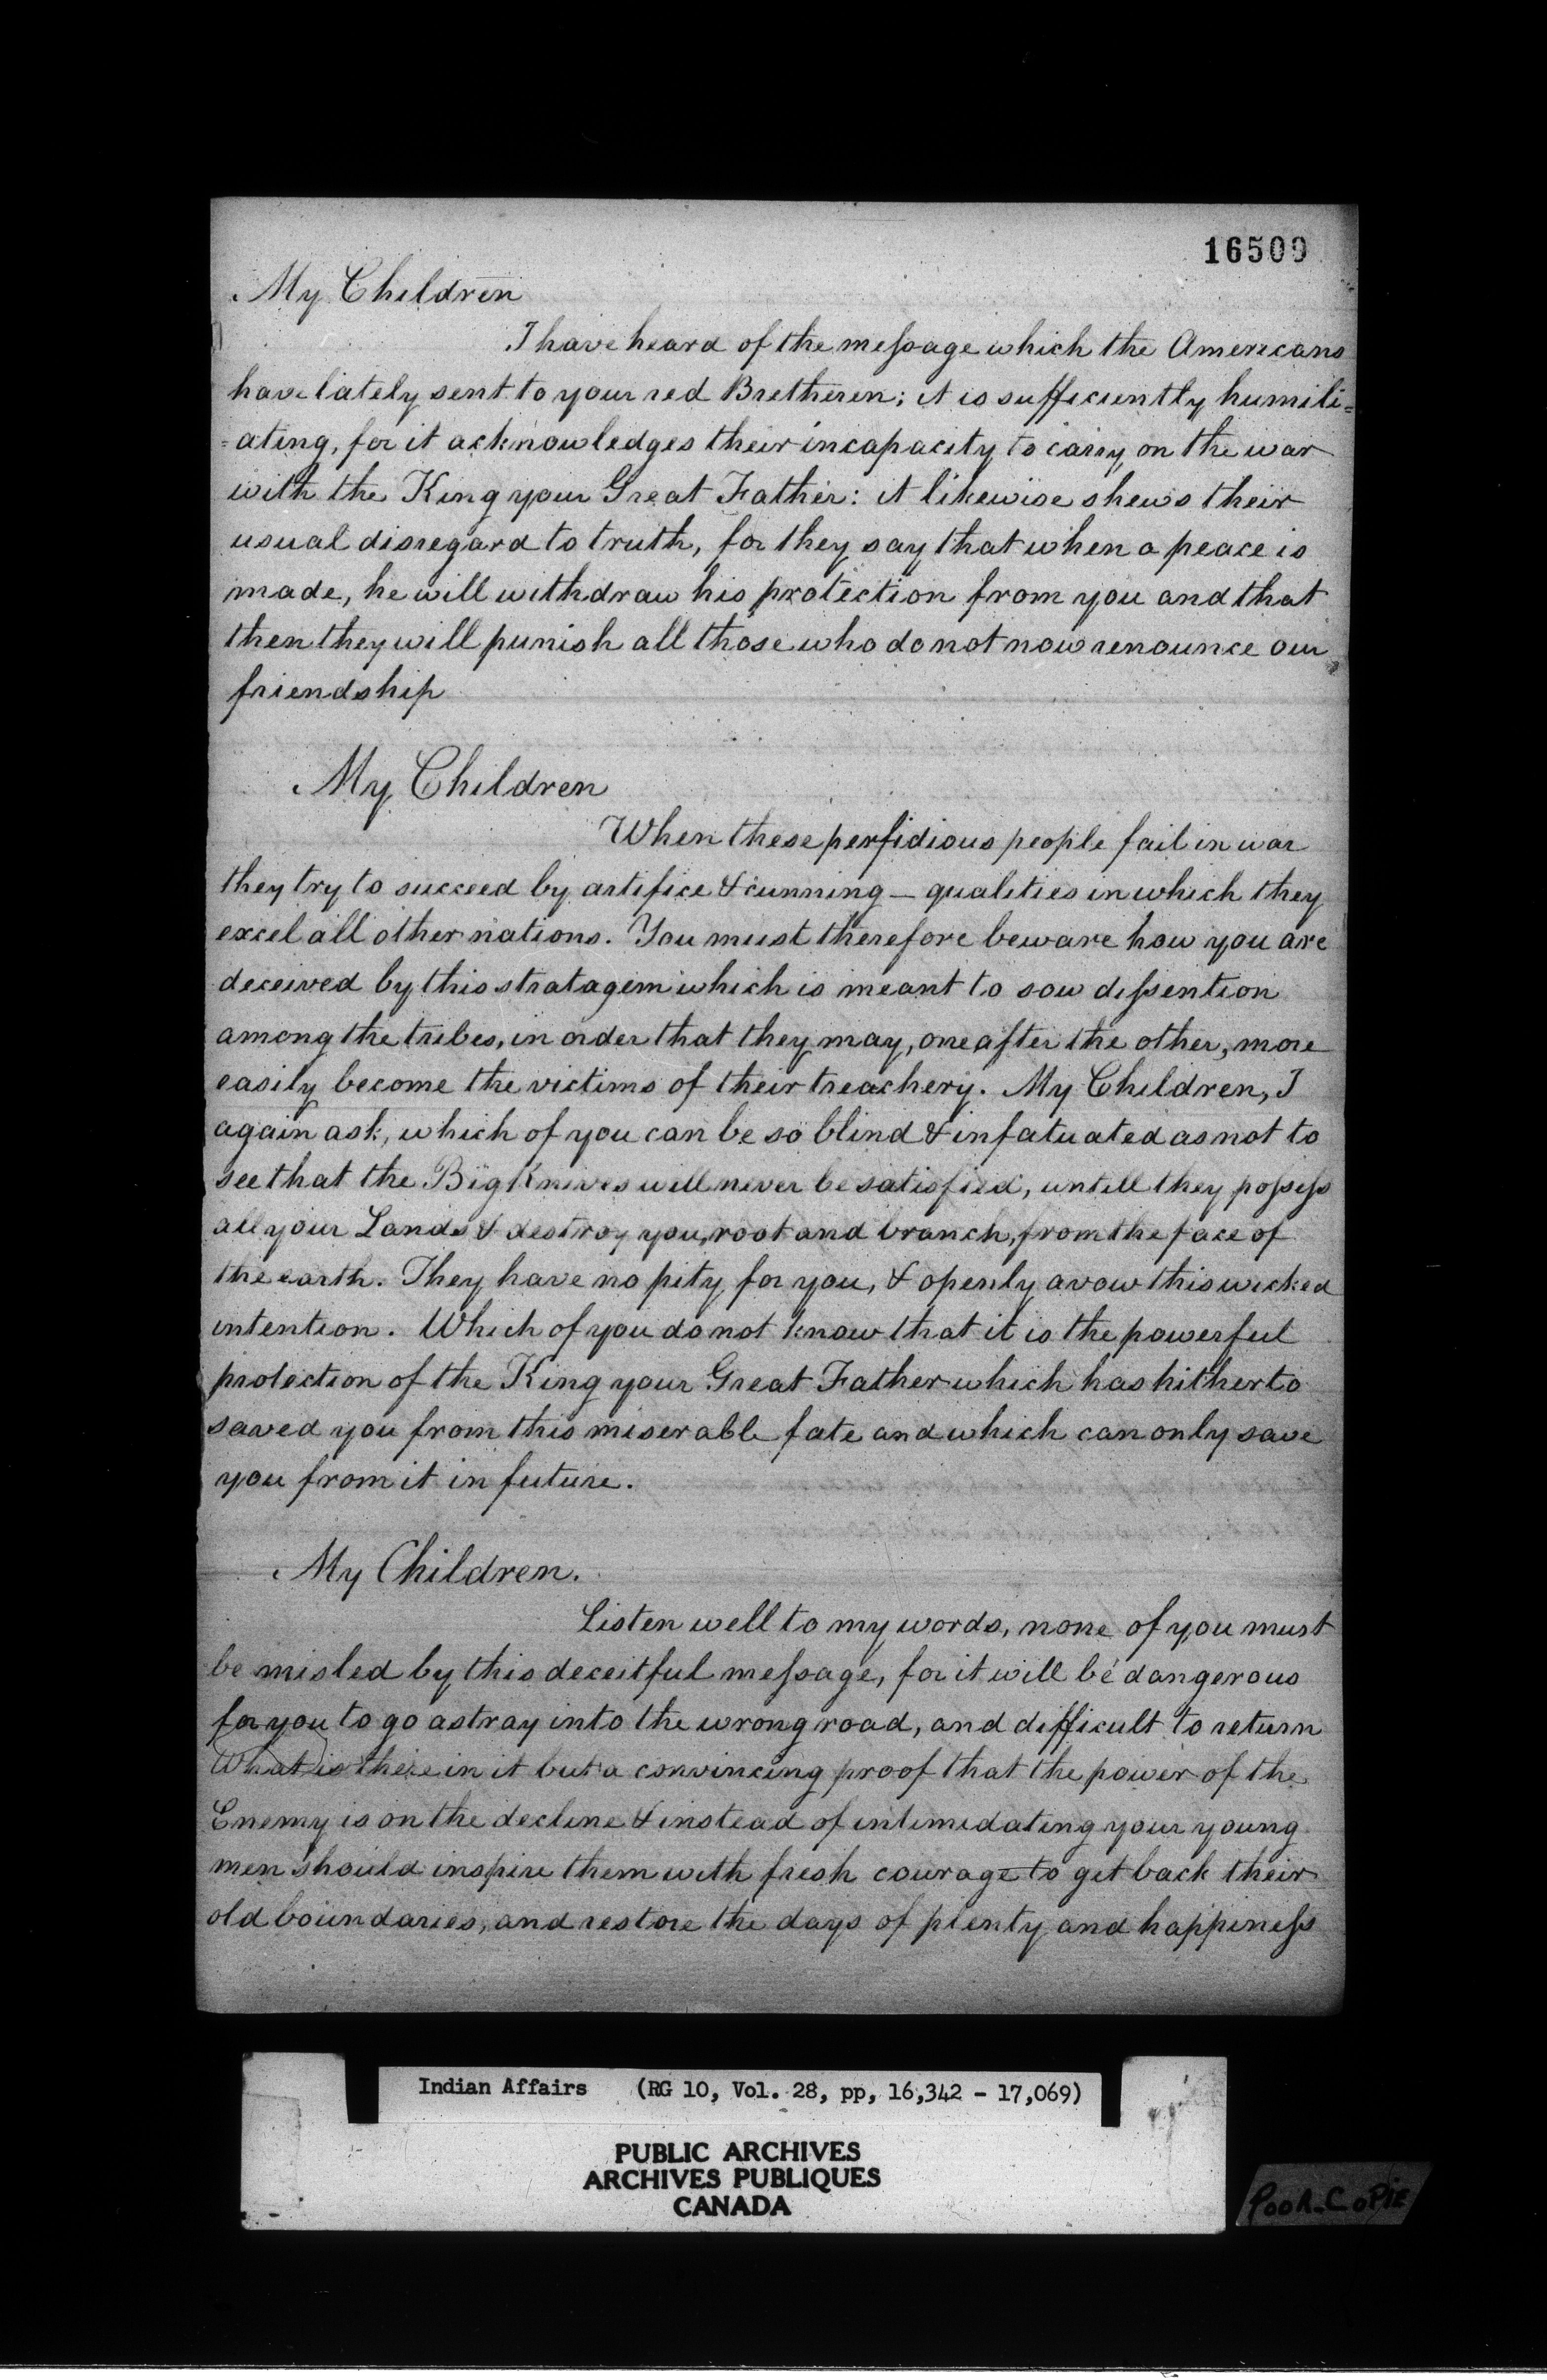 16509
My Children
I have heard of the message which the Americans
have lately sent to your red Bretheren; it is sufficiently humili=
=ating, for it acknowledges their incapacity to carry on the war
with the King your Great Father: it likewise shews their
usual disregard to truth, for they say that when a peace is
made, he will withdraw his protection from you and that
then they will punish all those who do not now renounce our
friendship
My Children
When these perfidious people fail in war
they try to succeed by artifice & cunning — qualities in which they
excel all other nations. You must therefore beware how you are
deceived by this stratagem which is meant to sow dissention
among the tribes, in order that they may, one after the other, more
easily become the victims of their treachery. My Children, I
again ask, which of you can be so blind & infatuated as not to
see that the Big Knives will never be satisfied, untill they possess
all your Lands & destroy you, root and branch, from the face of
the earth. They have no pity for you, & openly avow this wicked
intention. Which of you do not know that it is the powerful
protection of the King your Great Father which has hitherto
saved you from this miserable fate and which can only save
you from it in future.
My Children.
Listen well to my words, none of you must
be misled by this deceitful message, for it will be dangerous
for you to go astray into the wrong road, and difficult to return
What is there in it but a convincing proof that the power of the
Enemy is on the decline & instead of intimidating your young
men should inspire them with fresh courage to get back their
old boundaries, and restore the days of plenty and happiness
Indian Affairs (RG 10, Vol. 28, pp, 16,342 - 17,069)
PUBLIC ARCHIVES
ARCHIVES PUBLIQUES
CANADA
POOR COPIE